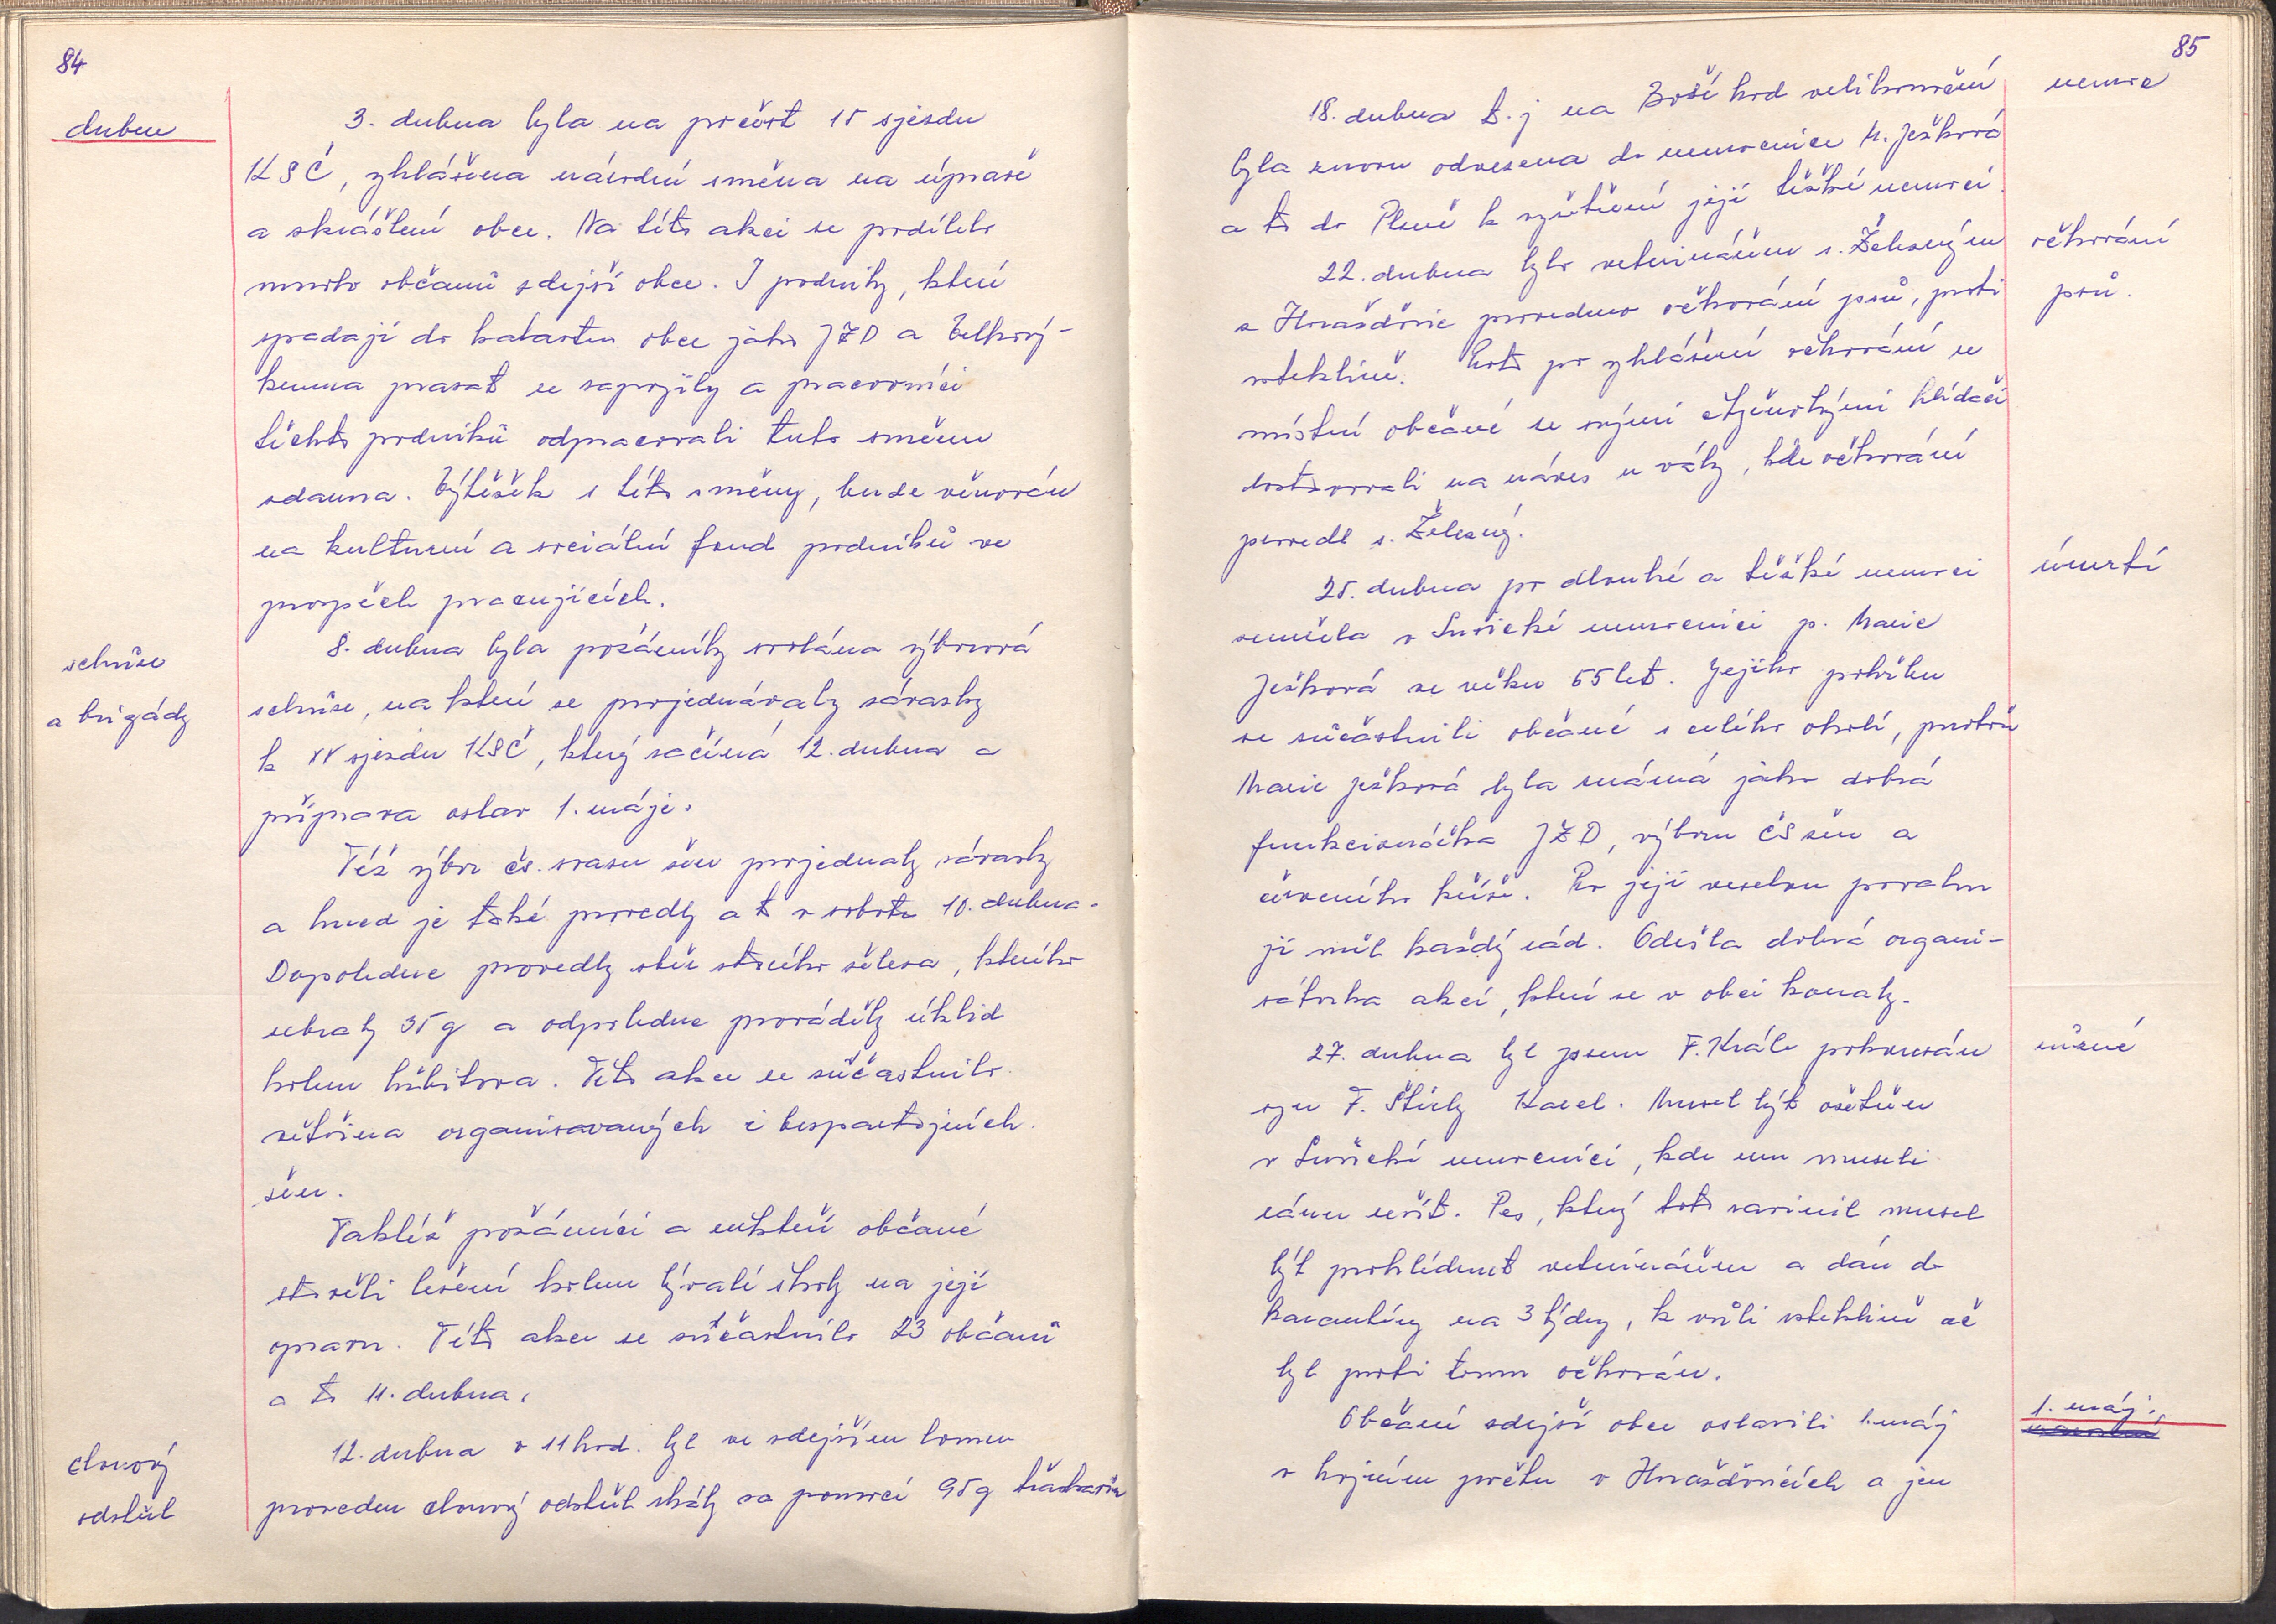 84
duben
3. dubna byla na počest 15 sjezdu
KSČ, vyhlášena národní směna na úpravě
a zkrášlení obce. Na této akci se podílelo
mnoho občanů zdejší obce. I podniky, které
spadají do katastru obce jako JZD a Velkový-
krmna prasat se zapojily a pracovníci
těchto podniků odpracovali tuto směnu
zdarma. Výtěžek s této směny, bude věnován
na kulturní a sociální fond podniků ve
prospěch pracujících.
schůze
a brigády
8. dubna byla požárníky svolána výborová
schůze, na které se projednávaly závazky
k XV sjezdu KSČ, který začíná 12. dubna a
příprava oslav 1. máje.
Též výbor čs. svazu žen projednaly závazky
a hned je také provedly a to v sobotu 10. dubna.
Dopoledne provedly sběr starého železa, kterého
sebraly 35 q a odpoledne prováděly úklid
kolem hřbitova. Této akce se súčastnilo
většina organisovaných i bezpartijních
žen.
Taktéž požárníci a někteří občané
stavěli lešení kolem bývalé školy na její
opravu. Této akce se súčastnilo 23 občanů
a to 11. dubna.
clonový
odstřel
12. dubna v 11 hod. byl ve zdejším lomu
proveden clonový odstřel skály za pomoci 95 q třaskavin
85
nemoc
18. dubna t.j na Boží hod velikonoční
byla znovu odvezena do nemocnice M. Ješková
a to do Plzně k vyšetření její těžké nemoci.
očkování
psů.
22. dubna bylo veterinářem s. Železným
z Hradčovic provedeno očkování psů, proti
vzteklině. Proto po vyhlášení očkování se
místní občané se svými čtyřnohými hlídači
dostavovali na náves u váhy, kde očkování
provedl s. Železný.
úmrtí
25. dubna po dlouhé a těžké nemoci
zemřela v Sušické nemocnici p. Marie
Ješková ve věku 55 let. Jejího pohřbu
se súčastnili občané z celého okolí, protože
Marie Ješková byla známá jako dobrá
funkcionářka JZD, výboru ČS žen a
červeného kříže. Pro její veselou povahu
jí měl každý rád. Odešla dobrá organi-
zátorka akcí, které se v obci konaly.
různé
27. dubna byl psem F. Krále pokousán
syn F. Karel. Musel být ošetřen
v Sušické nemocnici, kde mu museli
ránu sešít. Pes, který toto zavinil musel
být prohlédnut veterinářem a dán do
karantény na 3 týdny, k vůli vzteklině ač
byl proti tomu očkován.
1. máj.
Občané zdejší obce oslavili 1. máj
v hojném počtu v a jen